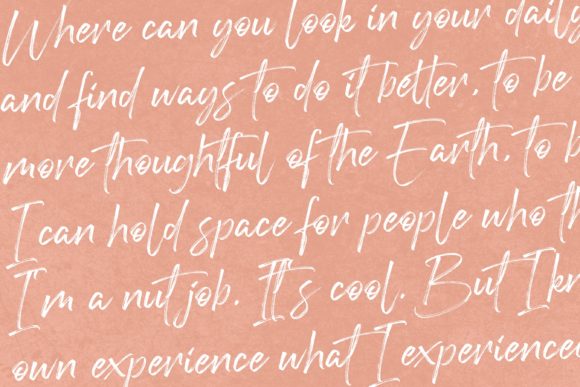 Where can you look in your daily
and find ways to do it better, to be
more thoughtful of the Earth, to b
I can hold space for people who th
I'm a nut job. It's cool. But I kn
own experience what I experienced